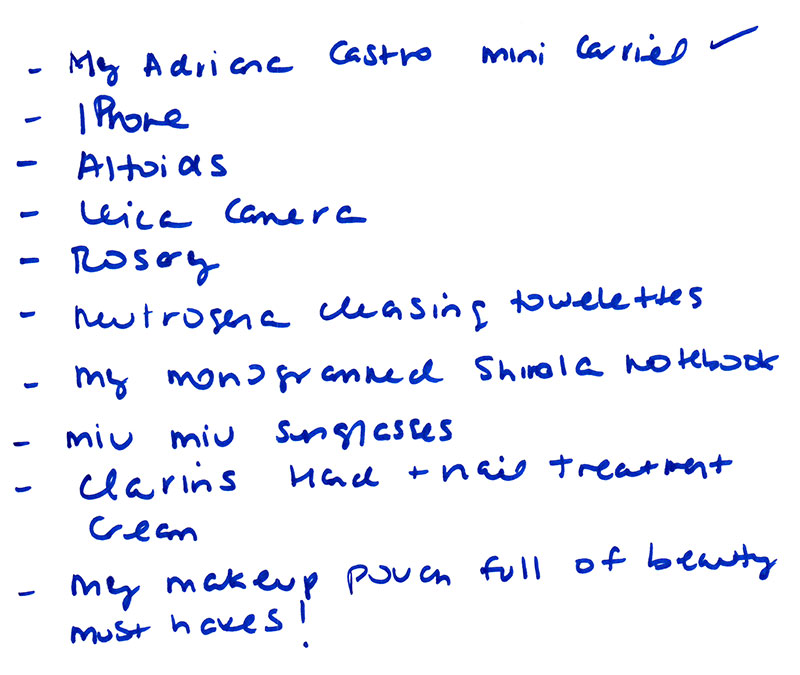 - My Adriana Castro mini Carriel ✓
- IPhone
- Altoids
- Leica Camera
- Rosary
- neutrogena cleasing towelettes
- my monogrammed Shinola notebook
- miu miu sunglasses
- Clarins Hand + nail treatment
cream
- my makeup pouch full of beauty
must haves!